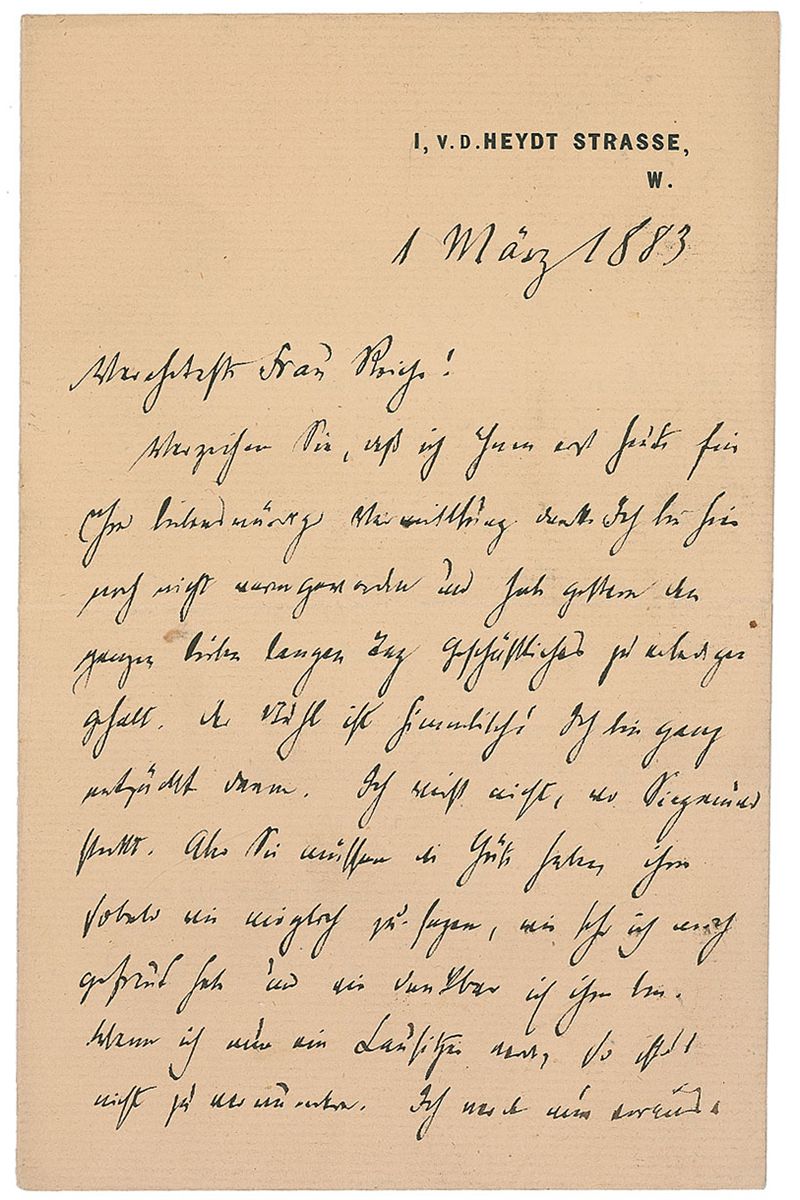 I, V. D. HEYDT STRASSE,
W.
1 März 1883
Verehrteste Frau Reiche!
Verzeihen Sie, daß ich Ihnen erst heute für
Ihre liebenswürdge Vermittlung danke. Ich bin hier
noch nicht warmgeworden und habe gestern den
ganzen lieben langen Tag Geschäftliches zu erledigen
gehabt. Der Stuhl ist himmlisch! Ich bin ganz
entzückt davon. Ich weiß nicht, wo Siegmund
steckt. Also Sie müssen die Güte haben, ihm
sobald wie möglich zu sagen, wie sehr ich mich
gefreut habe und wie dankbar ich ihm bin.
Wenn ich nun ein Lausitzer werde, so ist's
nicht zu verwundern. Ich werde nun